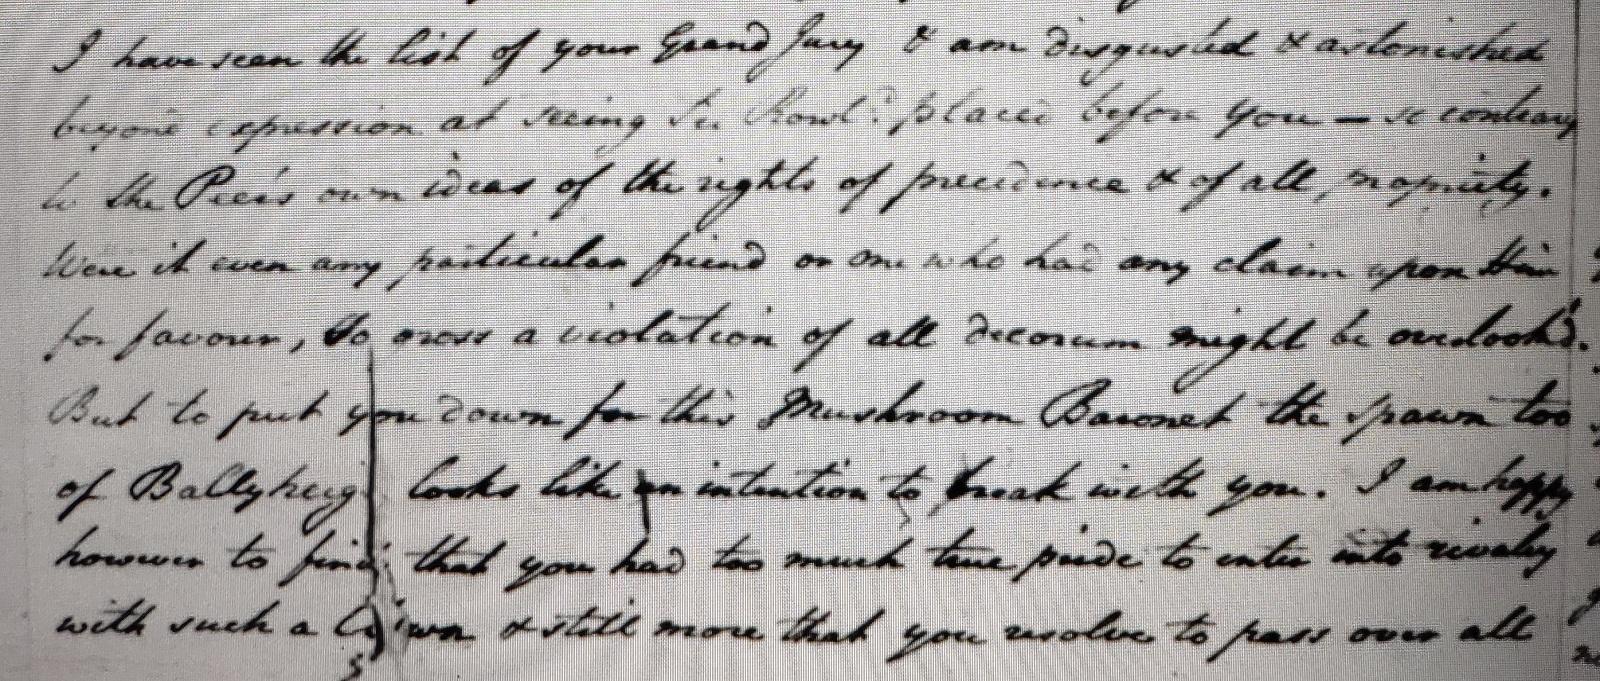 I have seen the list of your Grand Jury & am disgusted & astonished
beyond expression at seeing Sir Rowl.d placed before you — so contrary
to the Peer's own ideas of the rights of precedence & of all propriety.
Were it even any particular friend or one who had any claim upon Him
for favour, so gross a violation of all decorum might be overlook'd.
But to put you down for this Mushroom Baronet the spawn too
of Ballyheig looks like an intention to break with you. I am happy
however to find that you had too much true pride to enter into rivalry
with such a Clown & still more that you resolve to pass over all